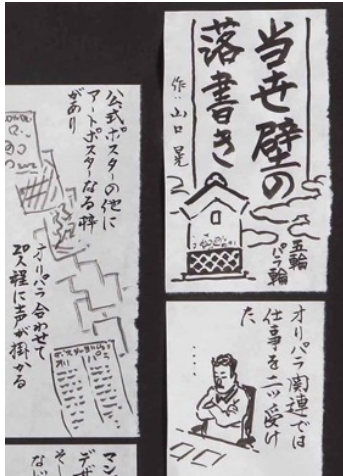 当世壁の
落書き
作:山口晃
五輪
パラ輪
オリパラ関連では
仕事を二ツ受け
た
公式ポスターの他に
アートポスターなる枠
があり
オリパラ合わせて
20人程に声が掛かる
マン
デザ
そし
ない